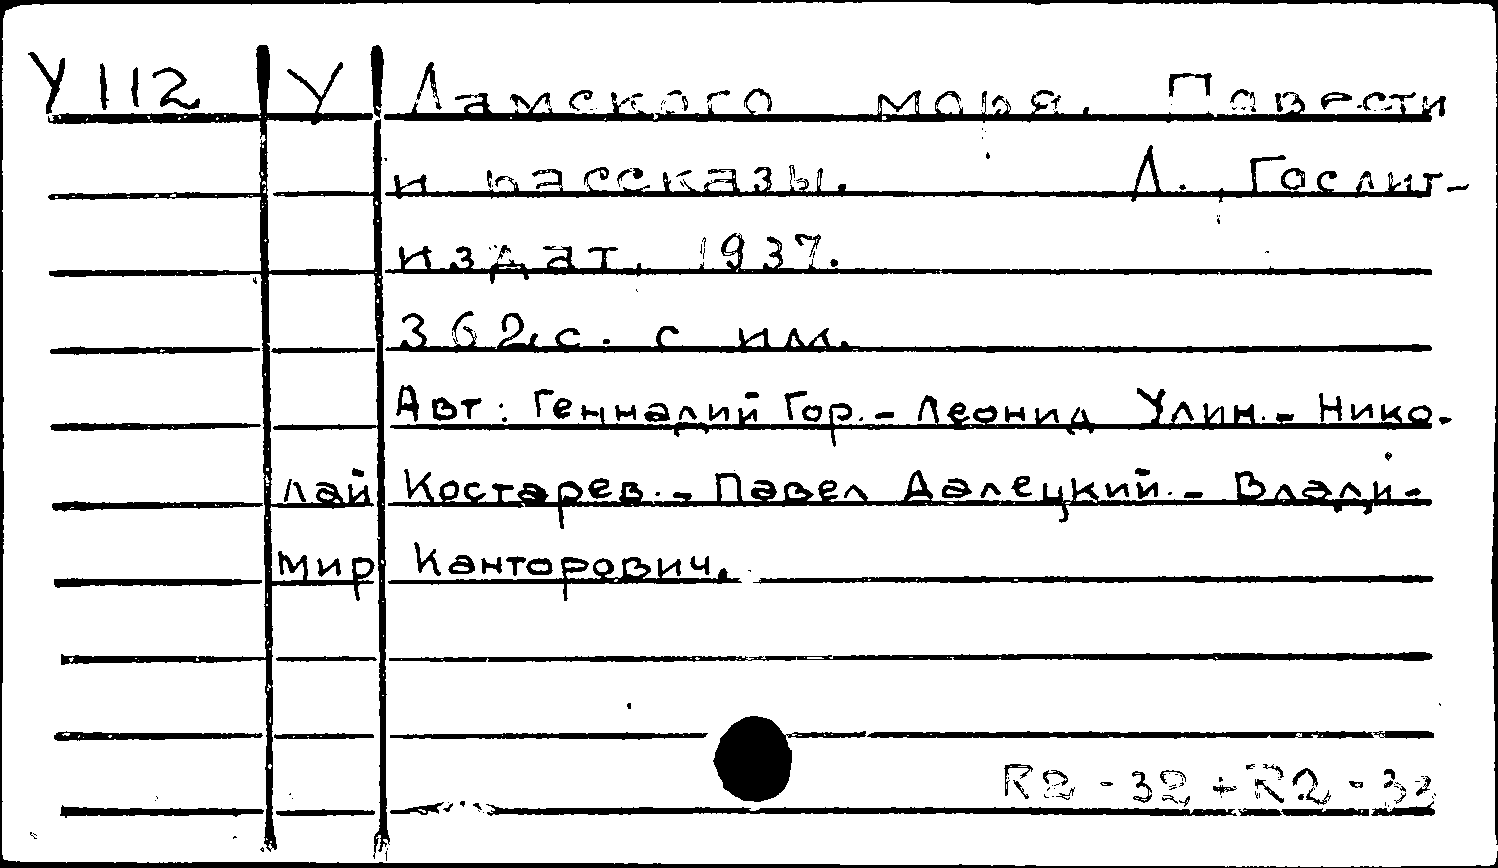 У112 У Ламского моря. Повести
и рассказы. Л., Гослит-
издат, 1937.
362 с. с ил.
Авт: Геннадий Гор.- Леонид Улин.- Нико-
лай Костарев.- Павел Далецкий.- Влади-
мир Канторович.
R2-32+R2-33